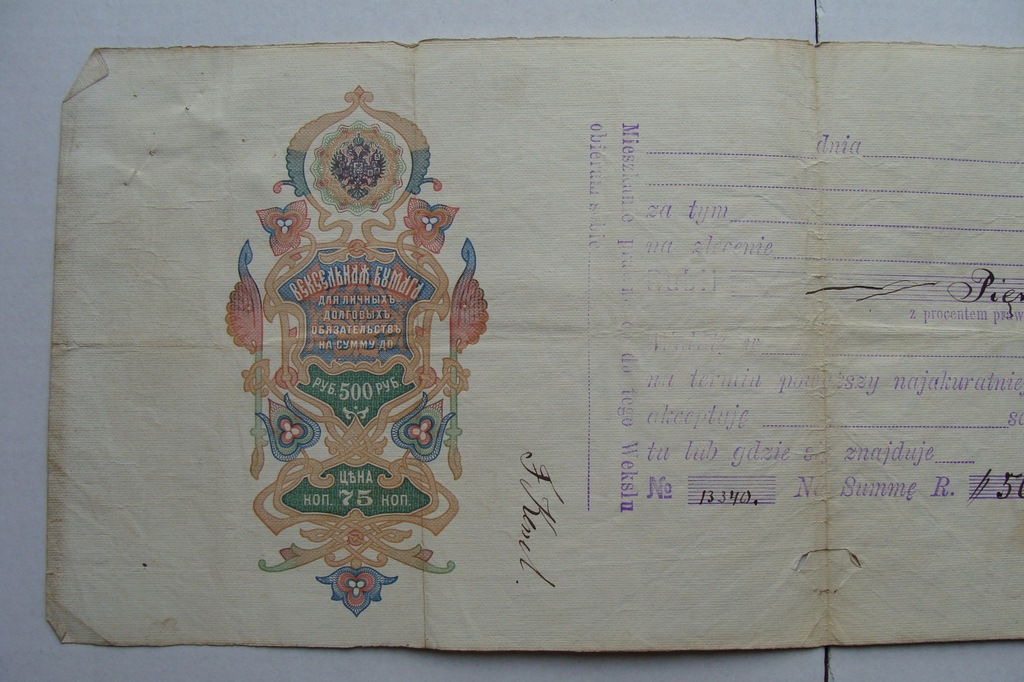 ВЕКСЕЛЬНАЯ БУМАГА
ДЛЯ ЛИЧНЫХЪ
ДОЛГОВЫХЪ
ОБЯЗАТЕЛЬСТВЪ
НА СУММУ ДО
РУБ. 500 РУБ.
ЦѢНА
КОП. 75 КОП.
Mieszkanie prawne do tego Wekslu
obieram sobie
dnia
za tym
na zlecenie
z procentem
na termin powyższy
akceptuję
tu lub gdzie się znajduje
№ 13340. Na Summę R.